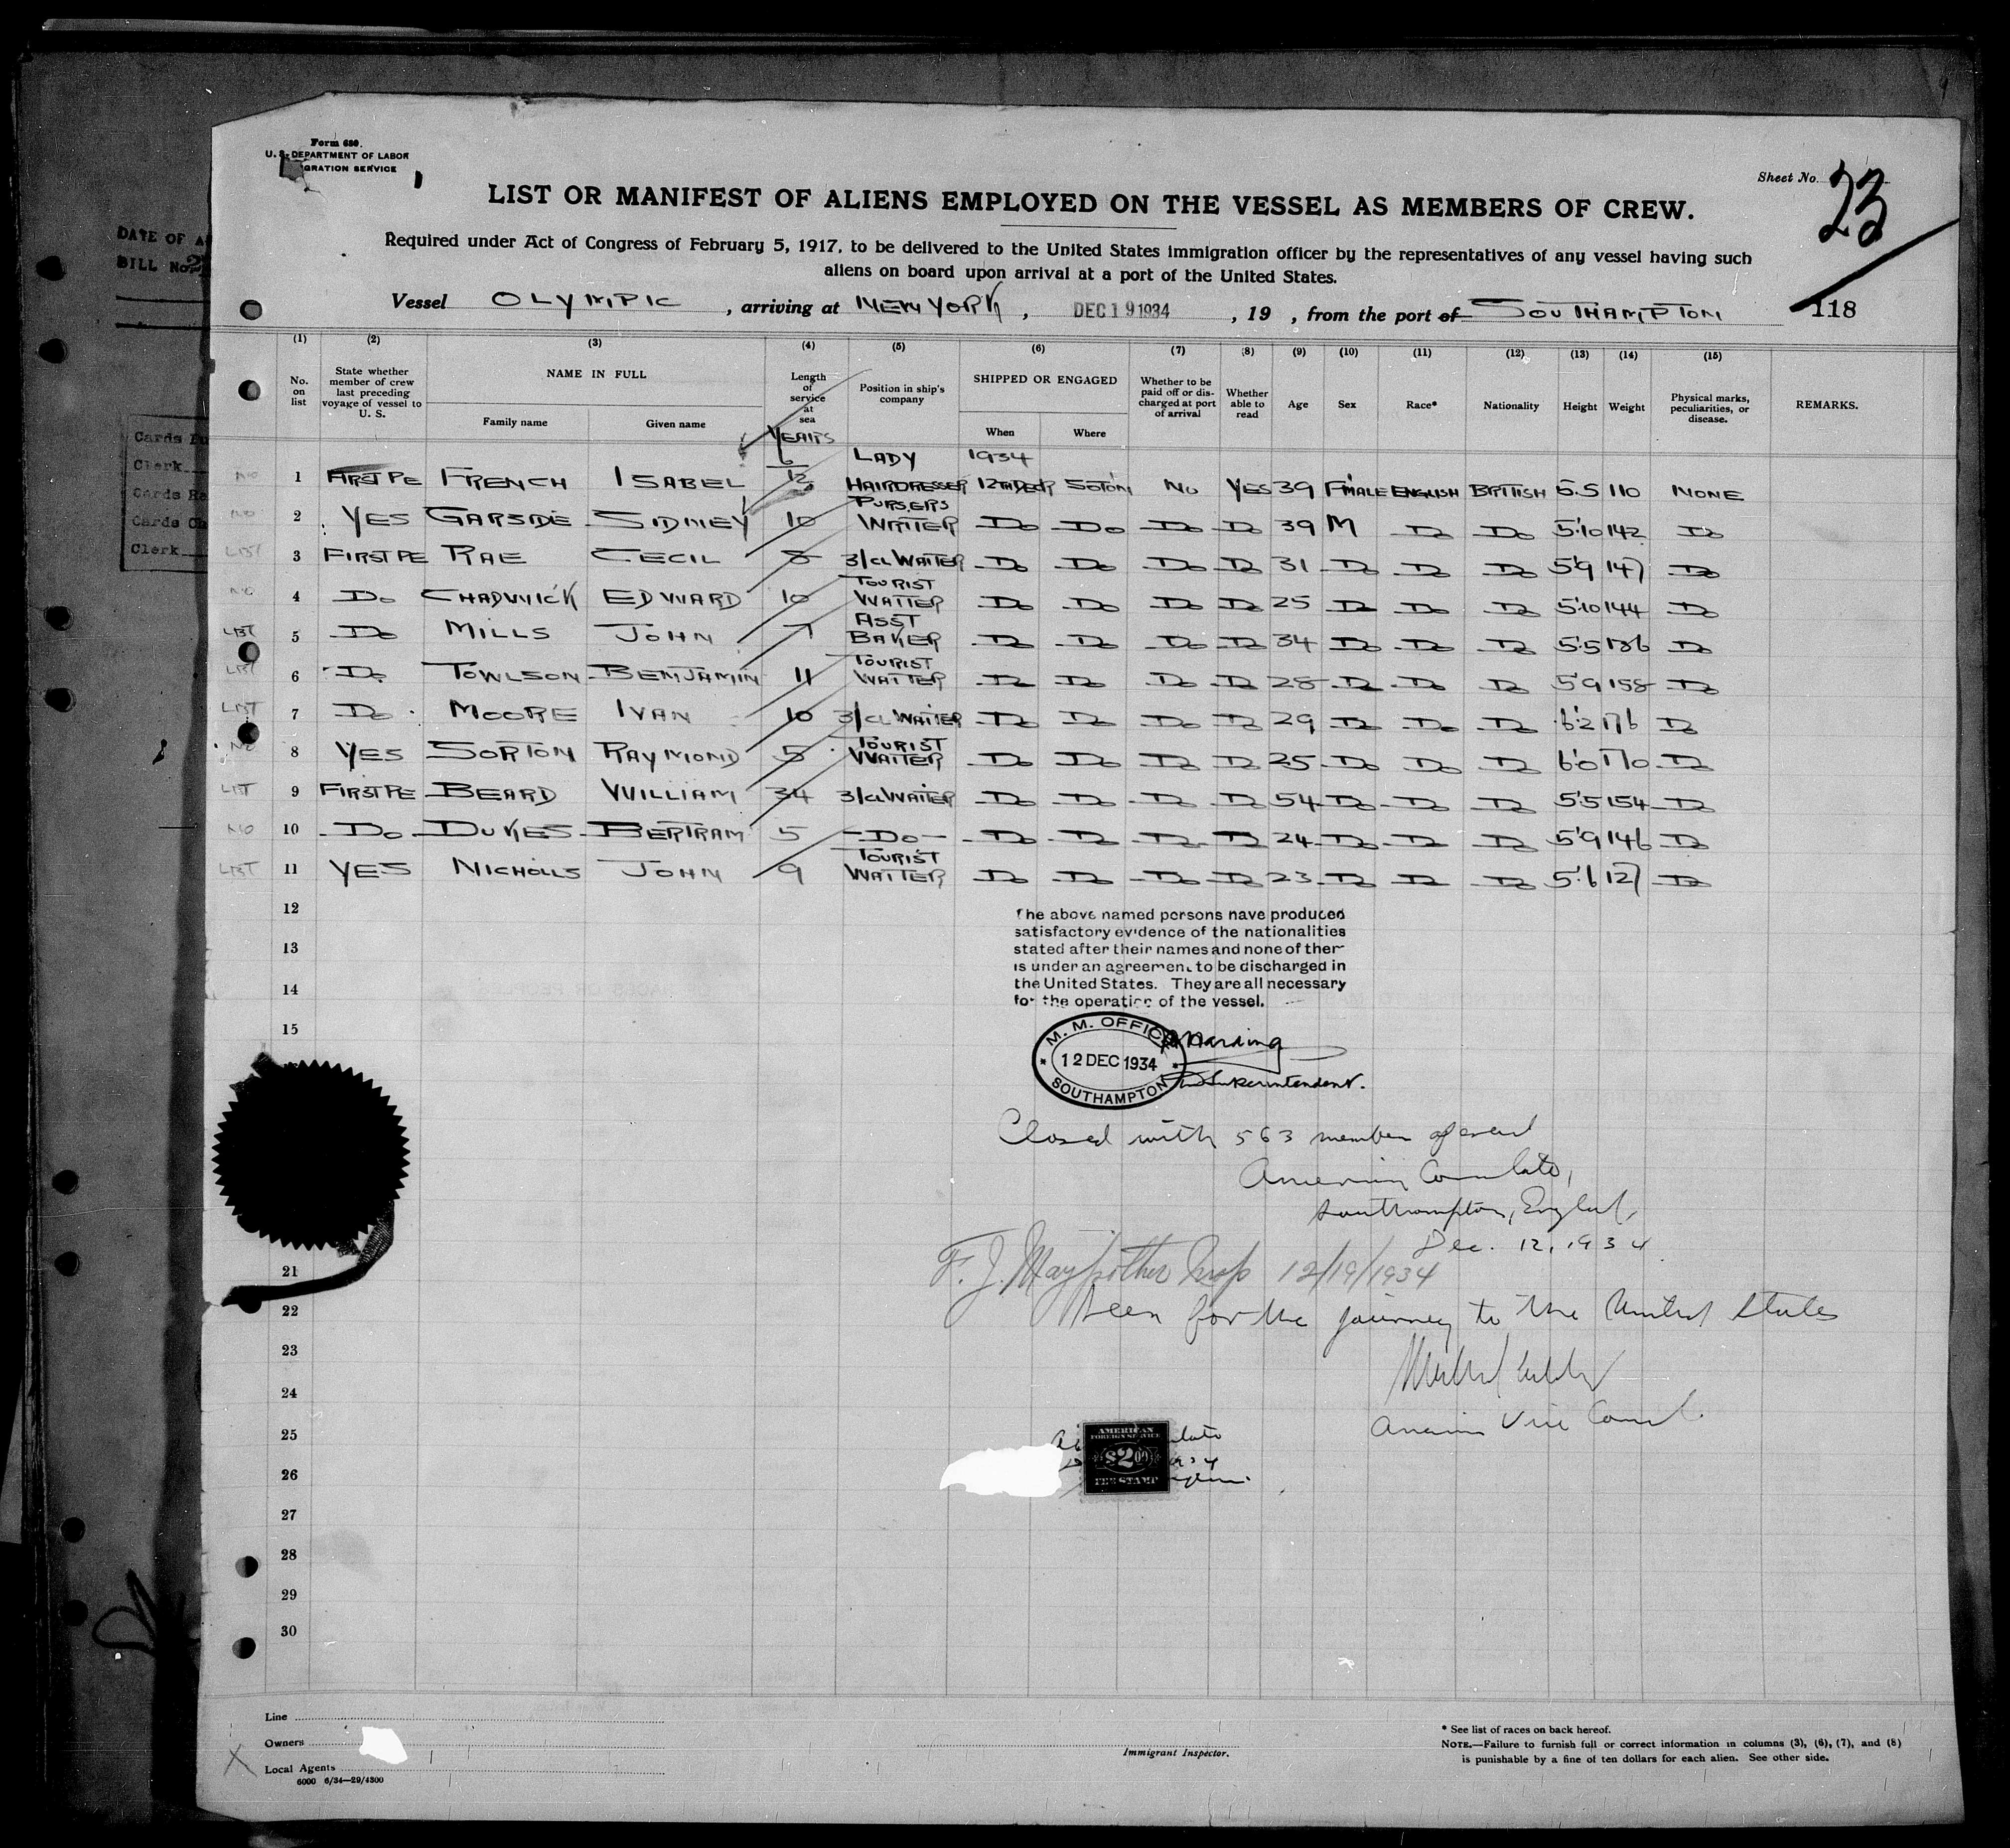 Form 680.
U. S. DEPARTMENT OF LABOR
GRATION SERVICE
Sheet No. 23
LIST OR MANIFEST OF ALIENS EMPLOYED ON THE VESSEL AS MEMBERS OF CREW.
Required under Act of Congress of February 5, 1917, to be delivered to the United States immigration officer by the representatives of any vessel having such
aliens on board upon arrival at a port of the United States.
Vessel OLYMPIC , arriving at NEW YORK , DEC 19 1934 , 19 , from the port of SOUTHAMPTON 118
DATE OF A
BILL No
(1) (2) (3) (4) (5) (6) (7) (8) (9) (10) (11) (12) (13) (14) (15)
No. on list State whether member of crew last preceding voyage of vessel to U. S. NAME IN FULL Family name Given name Length of service at sea Position in ship's company SHIPPED OR ENGAGED When Where Whether to be paid off or discharged at port of arrival Whether able to read Age Sex Race* Nationality Height Weight Physical marks, peculiarities, or disease. REMARKS.
YEARS
NO 1 FIRST PE FRENCH ISABEL 6/12 LADY HAIRDRESSER 1934 12TH DECR SOTON NO YES 39 F'MALE ENGLISH BRITISH 5.5 110 NONE
NO 2 YES GARSIDE SIDNEY 10 PURSERS WRITER DO DO DO DO 39 M DO DO 5'10 142 DO
LIST 3 FIRST PE RAE CECIL 8 3/CL WAITER DO DO DO DO 31 DO DO DO 5'9 147 DO
NO 4 DO CHADWICK EDWARD 10 TOURIST WAITER DO DO DO DO 25 DO DO DO 5'10 144 DO
LIST 5 DO MILLS JOHN 7 ASST BAKER DO DO DO DO 34 DO DO DO 5'5 136 DO
LIST 6 DO TOWLSON BENJAMIN 11 TOURIST WAITER DO DO DO DO 28 DO DO DO 5'9 158 DO
LIST 7 DO MOORE IVAN 10 3/CL WAITER DO DO DO DO 29 DO DO DO 6'2 176 DO
NO 8 YES SORTON RAYMOND 5 TOURIST WAITER DO DO DO DO 25 DO DO DO 6'0 170 DO
LIST 9 FIRST PE BEARD WILLIAM 34 3/CL WAITER DO DO DO DO 54 DO DO DO 5'5 154 DO
NO 10 DO DUKES BERTRAM 5 DO DO DO DO DO 24 DO DO DO 5'9 146 DO
LIST 11 YES NICHOLLS JOHN 9 TOURIST WAITER DO DO DO DO 23 DO DO DO 5'6 127 DO
12
13
14
15
The above named persons have produced
satisfactory evidence of the nationalities
stated after their names and none of them
is under an agreement to be discharged in
the United States. They are all necessary
for the operation of the vessel.
M. M. OFFICE
12 DEC 1934
SOUTHAMPTON
Harding
Superintendent.
Closed with 563 member of crew
American Consulate,
Southampton, England,
Dec. 12, 1934
F. J. Maypother Insp 12/19/1934
Seen for the journey to the United States
American Vice Consul.
AMERICAN
FOREIGN SERVICE
$2.00
FEE STAMP
21
22
23
24
25
26
27
28
29
30
Cards
Clerk
Cards
Cards
Clerk
Line
Owners
Local Agents
6000 6/34—29/4300
Immigrant Inspector.
* See list of races on back hereof.
NOTE.—Failure to furnish full or correct information in columns (3), (6), (7), and (8)
is punishable by a fine of ten dollars for each alien. See other side.